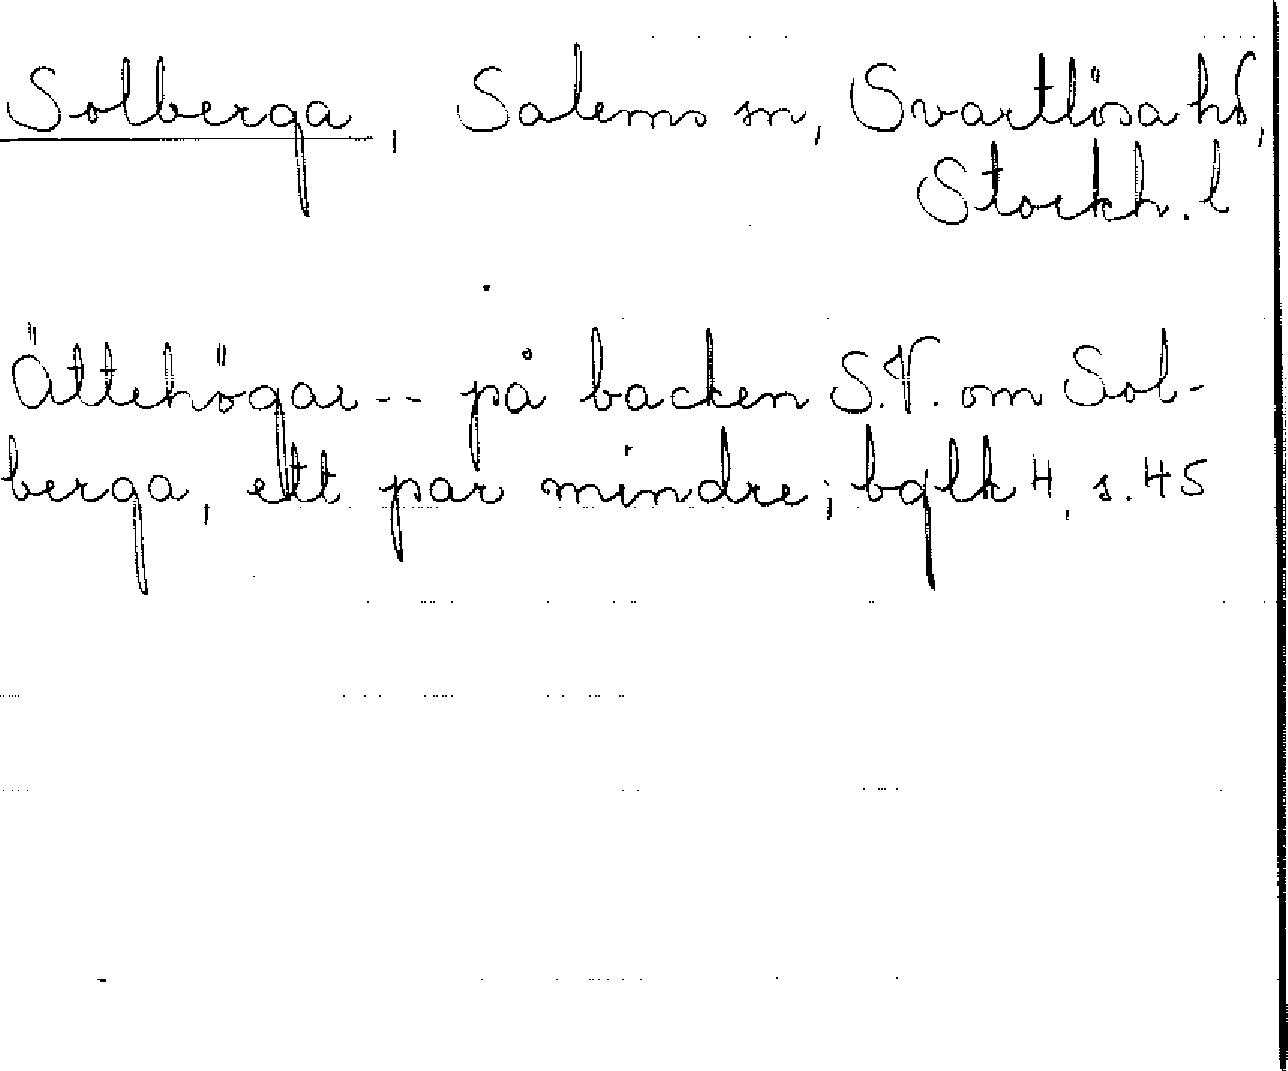 Solberga, Salems sn, Svartlösa hd,
Stockh. l
Ättehögar -- på backen S.V. om Sol-
berga, ett par mindre; bglk 4, s. 45